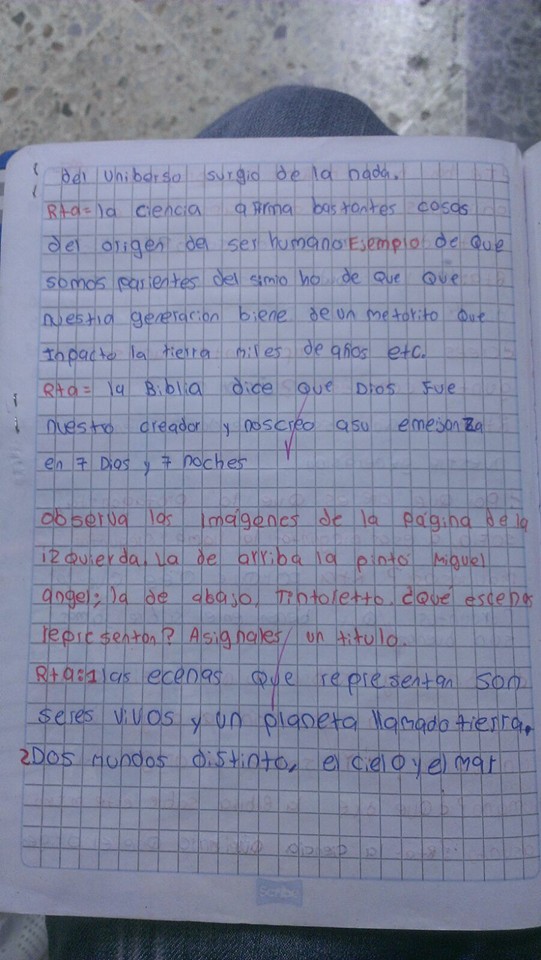 del Uniberso surgio de la nada.
Rta= la ciencia afirma bastantes cosas
del origen del ser humano Esemplo de que
somos parientes del simio ho de que que
nuestra generacion biene de un metorito que
Inpacto la tierra miles de años etc.
Rta= la Biblia dice que Dios fue
nuestro creador y noscreo asu emejonza
en 7 Dias y 7 noches
observa las imágenes de la página de la
izquierda. La de arriba la pinto Miguel
angel; la de abajo, Tintoletto. ¿Qué escenas
representan? Asignales un titulo.
Rta:1 las ecenas que representan son
seres vivos y un planeta llamado tierra.
2 Dos mundos distinto, el cielo y el mar
Scribe